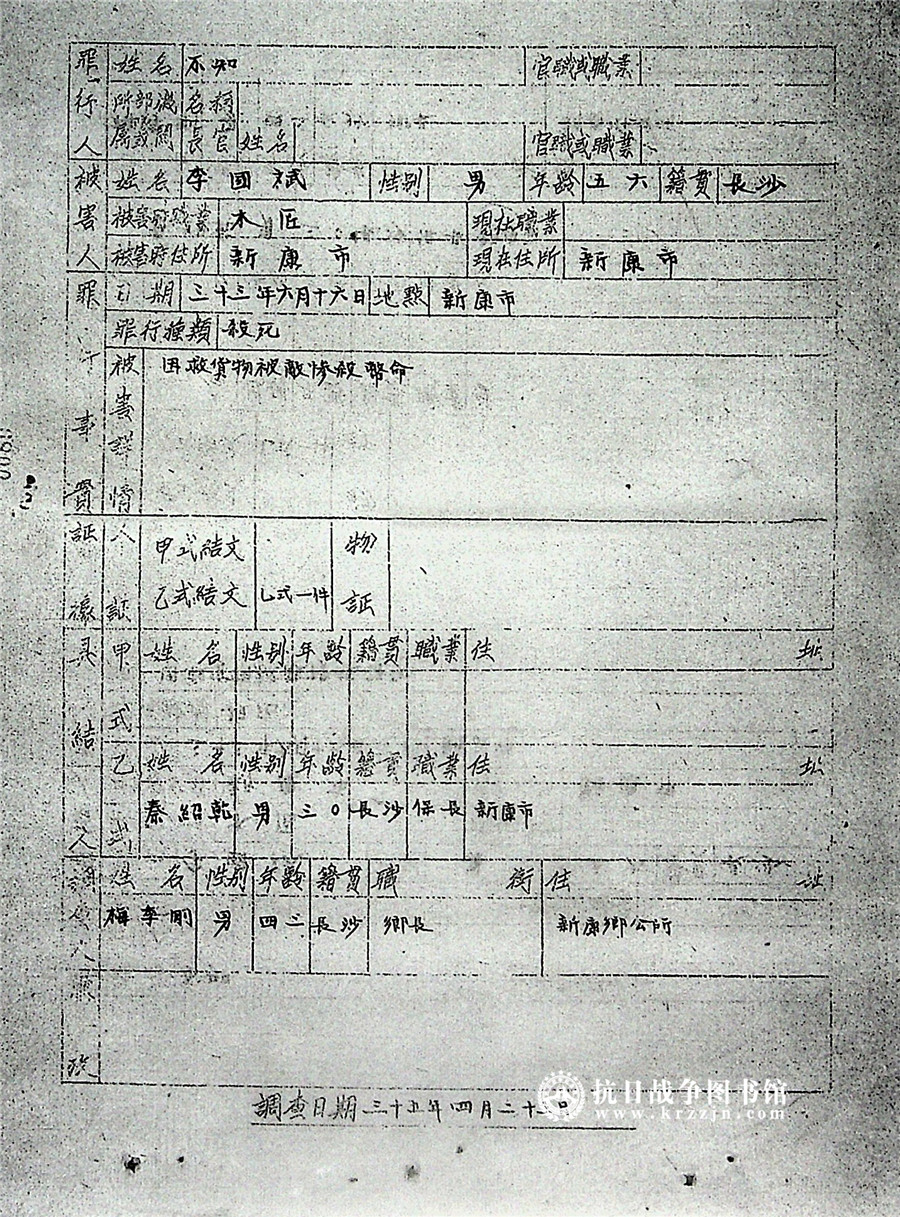 罪行人 姓名 不知 官職或職業
所部或 名稱
屬機關 長官 姓名 官職或職業
被害人 姓名 李國斌 性别 男 年齡 五六 籍貫 長沙
被害時職業 木匠 現在職業
被害時住所 新康市 現在住所 新康市
罪行事實 日期 三十三年六月十六日 地點 新康市
罪行種類 殺死
被害詳情 因救貨物被敵慘殺幣命
証據 人証 甲式結文 物証
乙式結文 乚式一件
具結人 甲式 姓名 性别 年齡 籍貫 職業 住址
乙式 姓名 性别 年齡 籍貫 職業 住址
秦紹乾 男 三〇 長沙 保長 新康市
調查人 姓名 性别 年齡 籍貫 職銜 住址
梅李剛 男 四三 長沙 鄉長 新康鄉公所
調查日期 三十五年四月二十 日
抗日战争图书馆
www.krzzjn.com